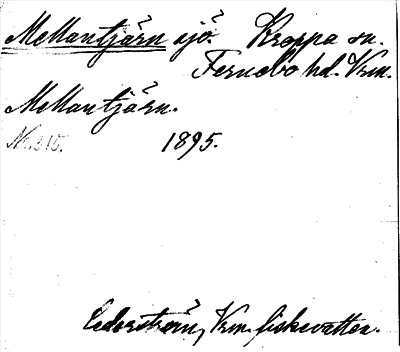 Mellantjärn sjö. Kroppa sn.
Fernebo hd. Vrm.
Mellantjärn.
Nr. 315. 1895.
Cederström, Vrm. fiskevatten.